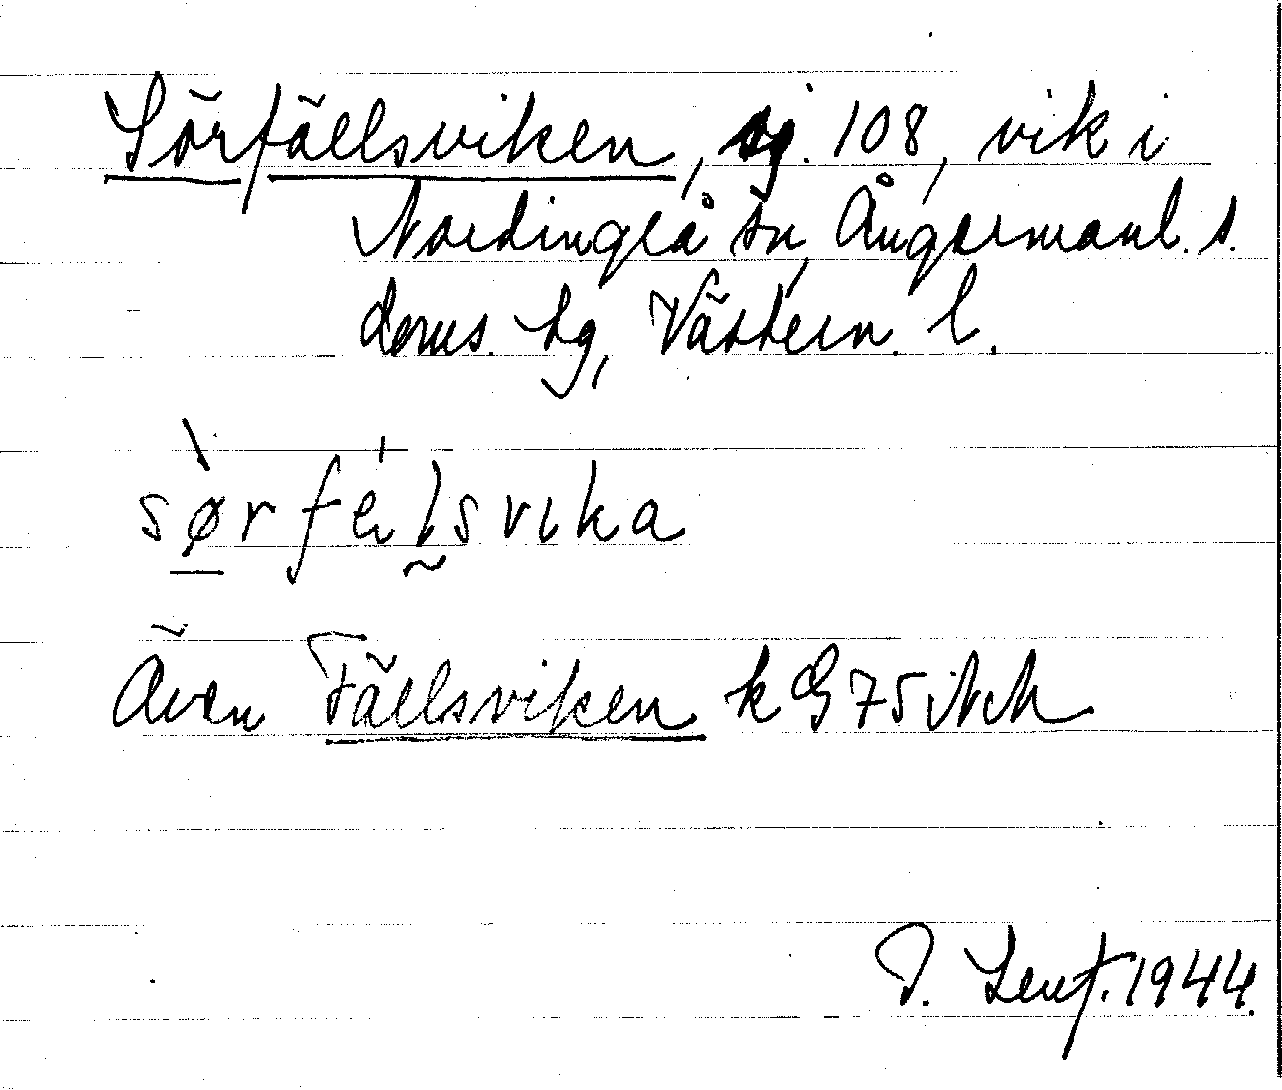 Sörfällsviken, sj. 108, vik i
Nordingrå sn, Ångermanl. s.
doms. tg, Västern. l.
sø̀rfélsvika
Även Fällsviken k G 75
1944.